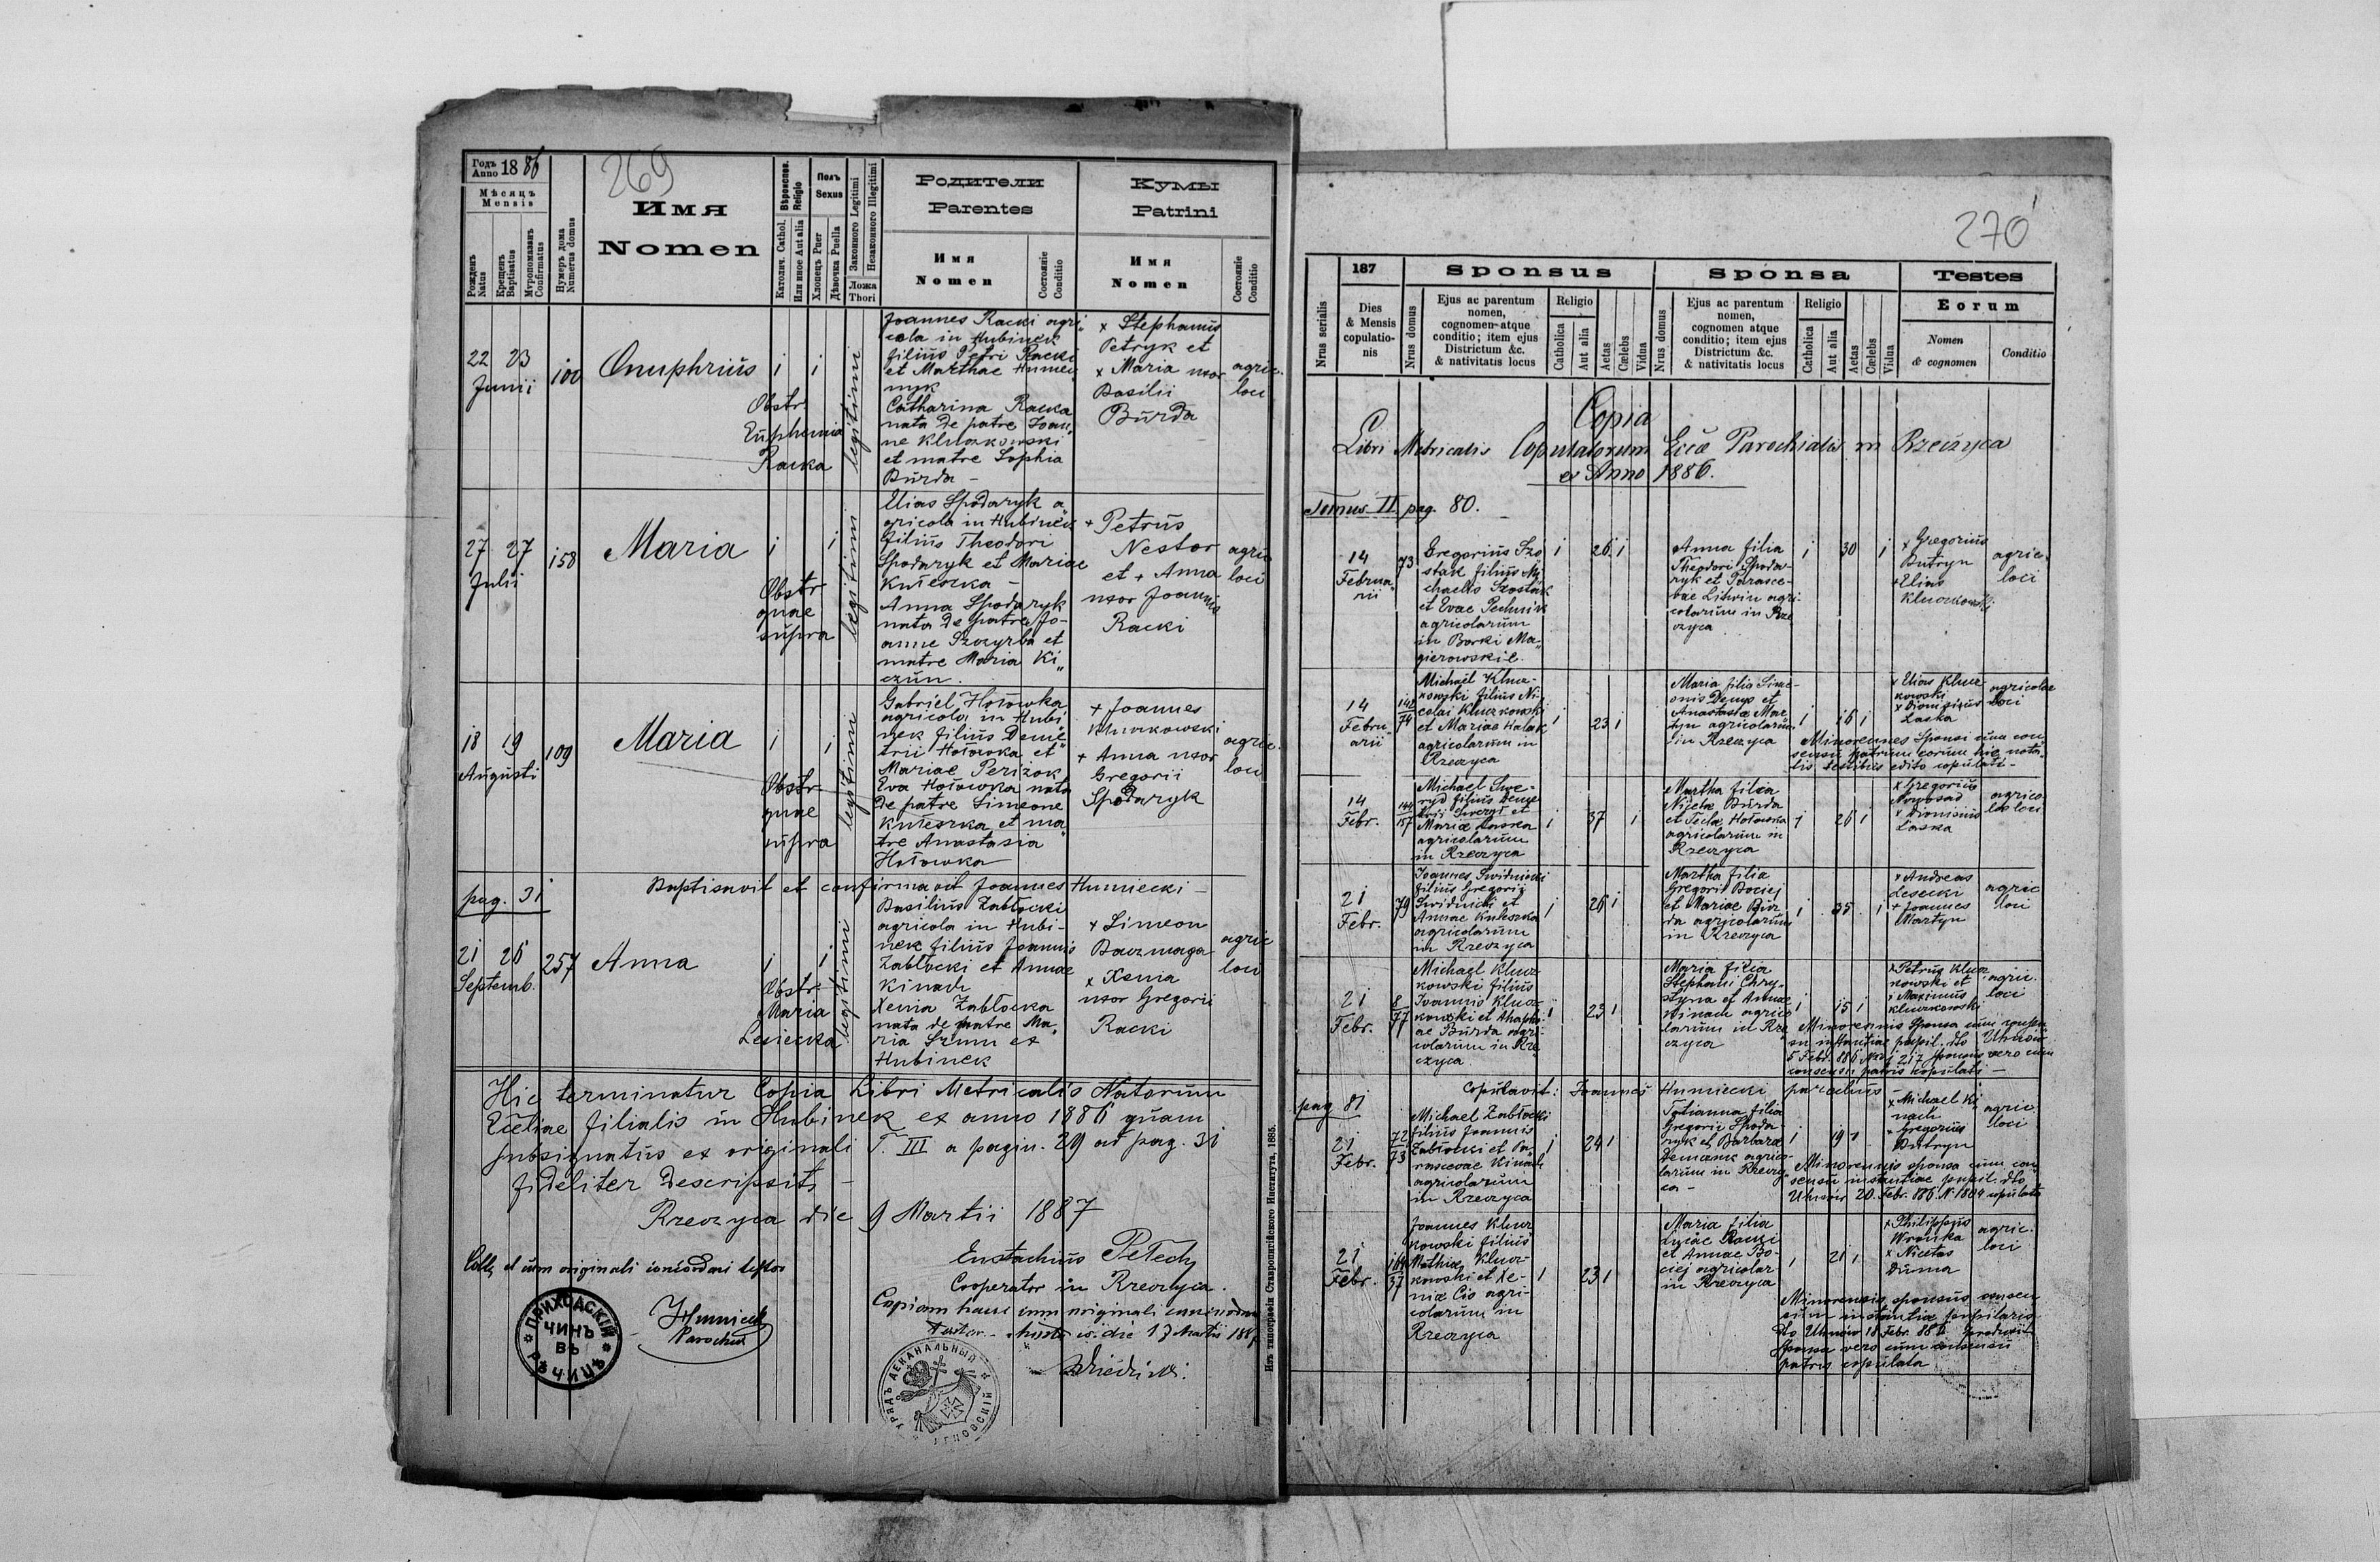 Годъ Anno 1886
269
Мѣсяцъ Mensis
Рожденъ Natus
Крещенъ Baptisatus
Мѵропомазанъ Confirmatus
Нумеръ дома Numerus domus
Имя
Nomen
Вѣроисповѣд. Religio
Католич. Cathol.
Или иное Aut alia
Полъ Sexus
Хлопецъ Puer
Дѣвочка Puella
Законного Legitimi
Незаконного Illegitimi
Ложа Thori
Родители
Parentes
Имя
Nomen
Состояніе Conditio
Кумы
Patrini
Имя
Nomen
Состояніе Conditio
22 23
Junii
100
Onuphrius
i i
Obstr.
Euphemia
Racka
legitimi
Joannes Racki agri„
cola in Hubinek
filius Petri Racki
et Marthae Humen„
nyk
Catharina Racka
nata de patre Joan„
ne Kluczkowski
et matre Sophia
Burda –
x Stephanus
Petryk et
x Maria uxor
Basilii
Burda
agric.
loci
27 27
Julii
158
Maria
i i
Obstr
quae
supra
legitimi
Elias Spodaryk a„
gricola in Hubinek
filius Theodori
Spodaryk et Mariae
Kuleszka –
Anna Spodaryk
nata de patre Jo-
anne Szczyrba et
matre Maria Ki„
czun.
+ Petrus
Nestor
et + Anna
uxor Joannis
Racki
agric
loci
18 19
Augusti
109
Maria
i i
Obstr.
quae
supra
legitimi
Gabriel Hołowka
agricola in Hubi
nek filius Deme
trii Hołowka et
Mariae Perizok
Eva Hołowka nata
de patre Simeone
Kuleszka et ma„
tre Anastasia
Hołowka
+ Joannes
Kluczkowski
+ Anna uxor
Gregorii
Spodaryk
agric.
loci
pag. 31
Baptisavit et confirmavit Joannes Humiecki –
21 26
Septemb.
257
Anna
i i
Obstr.
Maria
Lesiecka
legitimi
Basilius Zabłocki
agricola in Hubi-
nek filius Joannis
Zabłocki et Annae
Kinach
Xenia Zabłocka
nata de matre Ma„
ria Szum ex
Hubinek
+ Simeon
Baczmaga
x Xenia
uxor Gregorii
Racki
agric
loci
Hic terminatur Copia Libri Metricalis Natorum
Eccliae filialis in Hubinek ex anno 1886 quam
subsignatus ex originali T. III a pagin. 29 ad pag. 31
fideliter descripsit –
Rzeczyca die 9 Martii 1887
Eustachius Petech
Cooperator in Rzeczyca.
et cum originali concordari testor
JHumiecki
Parochus
ПРИХОДСКІЙ
ЧИНЪ
ВЪ
РѢЧИЦѢ
Copiam hanc cum originali concordare
testor. die 17 Martii 1887
УРЯДЪ ДЕКАНАЛЬНЫЙ
Изъ типографіи Ставропигійского Института, 1885.
270
Nrus serialis
187
Dies
& Mensis
copulatio-
nis
Nrus domus
Sponsus
Ejus ac parentum
nomen,
cognomen atque
conditio; item ejus
Districtum &c.
& nativitatis locus
Religio
Catholica
Aut alia
Aetas
Cœlebs
Vidua
Nrus domus
Sponsa
Ejus ac parentum
nomen,
cognomen atque
conditio; item ejus
Districtum &c.
& nativitatis locus
Religio
Catholica
Aut alia
Aetas
Cœlebs
Vidua
Testes
Eorum
Nomen
& cognomen
Conditio
Copia
Libri Metricalis Copulatorum Ecclæ Parochialis in Rzeczyca
ex Anno 1886.
Tomus II. pag. 80.
14
Februa„
rii
73
Gregorius Szo
stak filius Mi
chaelis Szostak
et Evae Pechnik
agricolarum
in Borki Ma„
gierowskie.
i 26 i
Anna filia
Theodori Spoda-
ryk et Parasce-
vae agri
colarum in Rze
czyca
i 30 i
x Gregorius
Butryn
+ Elias
Kluczkowski
agric.
loci
14
Febru„
arii
142
74
Michael Klucz-
kowski filius Ni-
colai Kluczkowski
et Mariae Halak
agricolarum in
Rzeczyca
i 23 i
Maria filia Sime-
onis et
Anastasiæ Mar
tyn agricolarum
in Rzeczyca
i 16 i
x Elias Klucz-
kowski
x Dionisius
Laska
agricolae
loci
Minorennes Sponsi cum con
sensu patrum eorum hic nota„
tis testibus edito copulati –
14
Febr.
144
157
Michael Swe-
ryd filius Deme
trii et
Mariæ Laska
agricolarum
in Rzeczyca
i 37 i
Martha filia
Nicetæ Burda
et Teclæ Hołowka
agricolarum in
Rzeczyca
i 26 i
x Gregorius
Nowosad
x Dionisius
Laska
agrico
læ loci
21
Febr.
79
Joannes Swidnicki
filius Gregorii
Swidnicki et
Annae Kuleszka
agricolarum
in Rzeczyca
i 26 i
Martha filia
Gregorii Bociej
et Mariae Bur
da agricolarum
in Rzeczyca
i 35 i
x Andreas
Lesiecki
+ Joannes
Martyn
agric
loci
21
Febr.
8
77
Michael Klucz
kowski filius
Joannis Klucz-
kowski et Ahaphi
ae Burda agri-
colarum in Rze
czyca
i 23 i
Maria filia
Stephani Chry-
styna et Annae
Kinach agrico
larum in Rze
czyca
i 15 i
x Petrus Klucz
kowski et
x Maximus
Kluczkowski
agric.
loci
Minorennis Sponsa cum consen
su instantiae pupil. dto Uhnów
5 Febr. 886 Nro 217 sponsus vero cum
consensu patris copulati –
Copulavit: Joannes Humiecki parochus –
pag 81
21
Febr.
72
73
Michael Zabłocki
filius Joannis
Zabłocki et Pa„
rascevae Kinach
agricolarum
in Rzeczyca
i 24 i
Tatianna filia
Gregorii Spoda-
ryk et Barbaræ
Demczuk agrico-
larum in Rzeczy„
ca –
i 19 i
x Michael Ki
nach
x Gregorius
Butryn
agric.
loci
Minorennis sponsa cum con„
sensu instantiae pupil. dto
Uhnów 20. Febr. 886 N. 1809 copulata
21
Febr.
164
37
Joannes Klucz
kowski filius
Mathiæ Klucz-
kowski et Xe-
niæ Cis agri-
colarum in
Rzeczyca
i 23 i
Maria filia
Lucae Racki
et Annae Bo-
ciej agricolar
in Rzeczyca
i 21 i
x Philippus
Wronka
x Nicetas
Duma
agric.
loci
Minorennis sponsus consen
sum instantia pupilaris
dto Uhnów 18 Febr. 886 produxit
Sponsa vero cum consensu
patris copulata